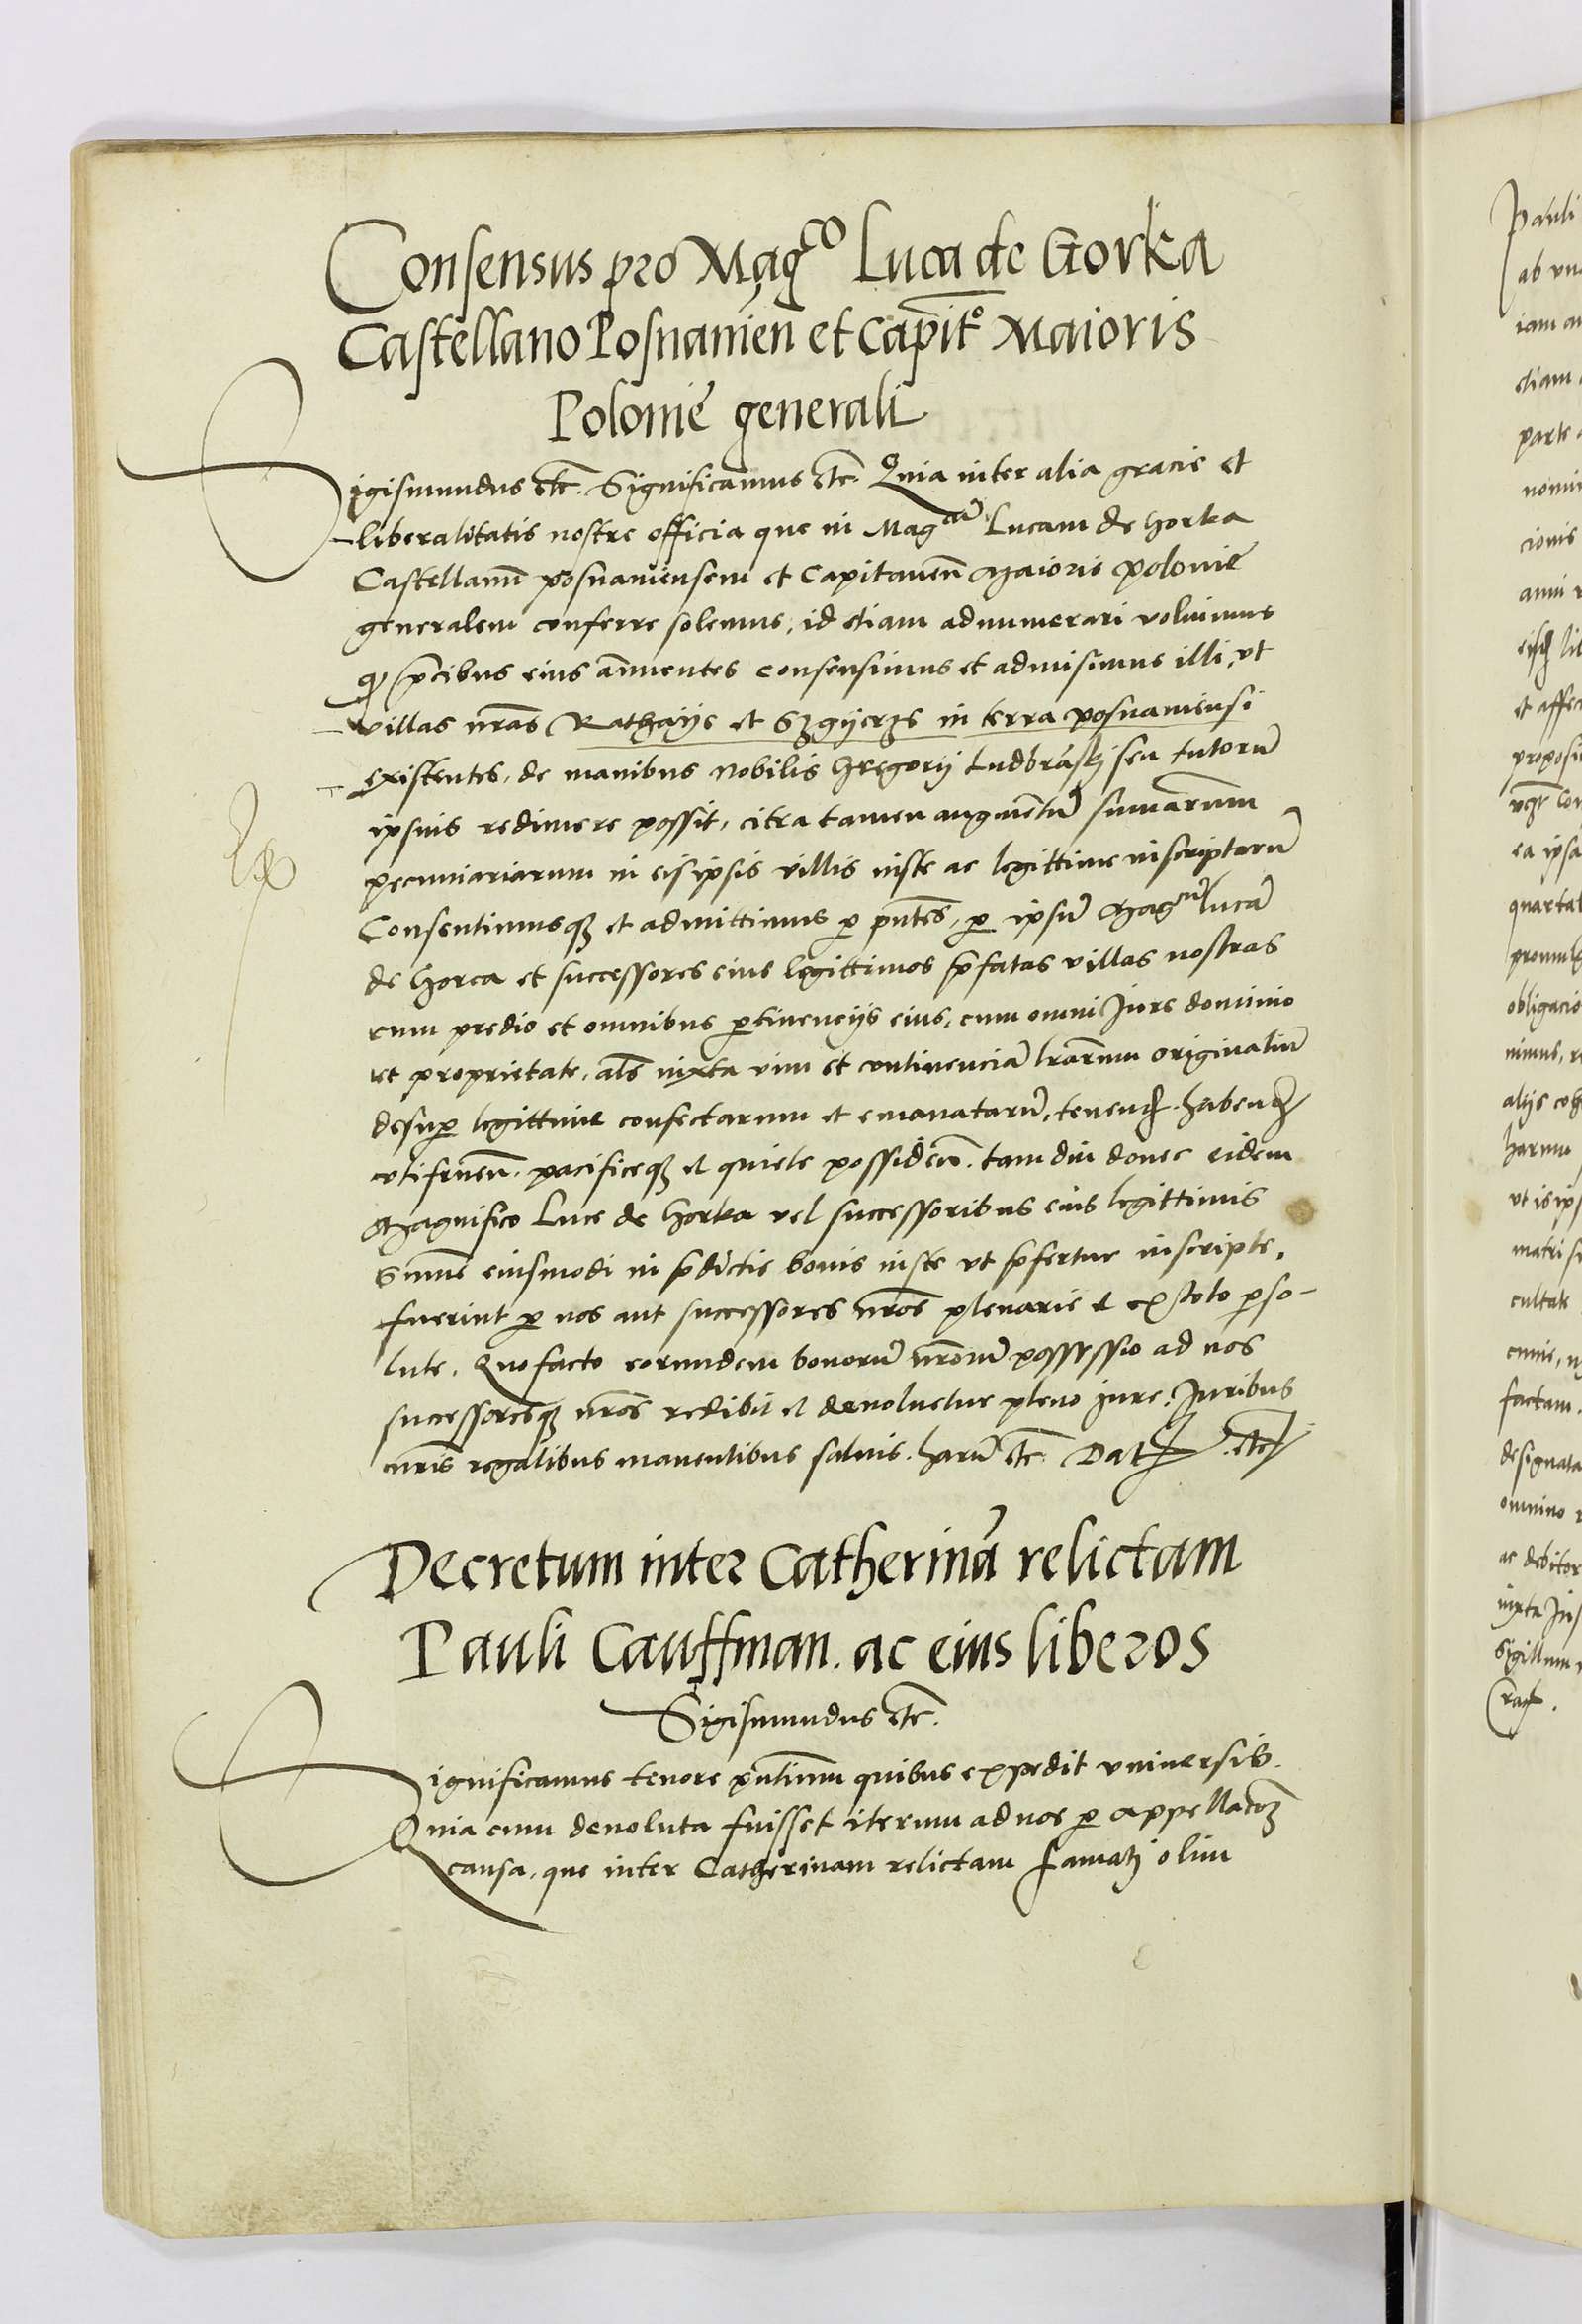 Consensus pro Mag^co Luca de Gorka
Castellano Posnanien̄ et Capit̄° Maioris
Polonie generali
Sigismundus etc̄. Significamus etc̄. Quia inter alia gracie et
liberalitatis nostre officia que in Mag^cū Lucam de Gorka
Castellanū posnaniensem et Capitaneū Maioris Polonie
generalem conferre solemus, id etiam adnumerari voluimus
qȝ p̄cibus eius an̄uentes consensimus et admisimus illi, ut
villas nr̄as Rathaÿe et Szgÿerze in terra posnaniensi
existentes, de manibus nobilis Gregorij Ludbraskj seu tutorū
ipsius redimere possit, citra tamen augmentū sum̄arum
pecuniariarum in eis ipsis villis iuste ac legittime inscriptarū
Consentimusqȝ et admittimus p pn̄tes, p ipsū Mag^cū lucā
de Gorca et successores eius legittimos p̄fatas villas nostras
cum predio et omnibus ptinencijs eius, cum omni Jure dominio
et proprietate, al̄s iuxta vim et continenciā lr̄arum originaliū
desup legittime confectarum et emanatarū, tenend̄. habend̄
utifruen̄. pacificeqȝ et quiete possiden̄. tam diu donec eidem
Magnifico Luce de Gorka vel successoribus eius legittimis
Sum̄e eiusmodi in p̄dictis bonis iuste ut p̄fertur inscripte,
fuerint p nos aut successores nr̄os plenarie et ex toto pso-
lute. Quo facto eorundem bonorū nr̄orum possessio ad nos
successoresqȝ nr̄os redibit et devoluetur pleno jure. Juribus
nr̄is regalibus manentibus saluis. harū etc̄. Dat̄ etc̄
Decretum inter Catherinā relictam
Pauli Cauffman. ac eius liberos
Sigismundus etc̄.
Significamus tenore pn̄tium quibus expedit universis.
Quia cum devoluta fuisset iterum ad nos p appellacōȝ
causa, que inter Catherinam relictam famatj olim
Pauli
iam
etiam
parte
cionis
et affec
ea ipsa
obligacio
nimus, r
harum
ut is ip
matri
cultate
factam.
designata
omnino
ac debitor
iuxta Jus
Sigillum